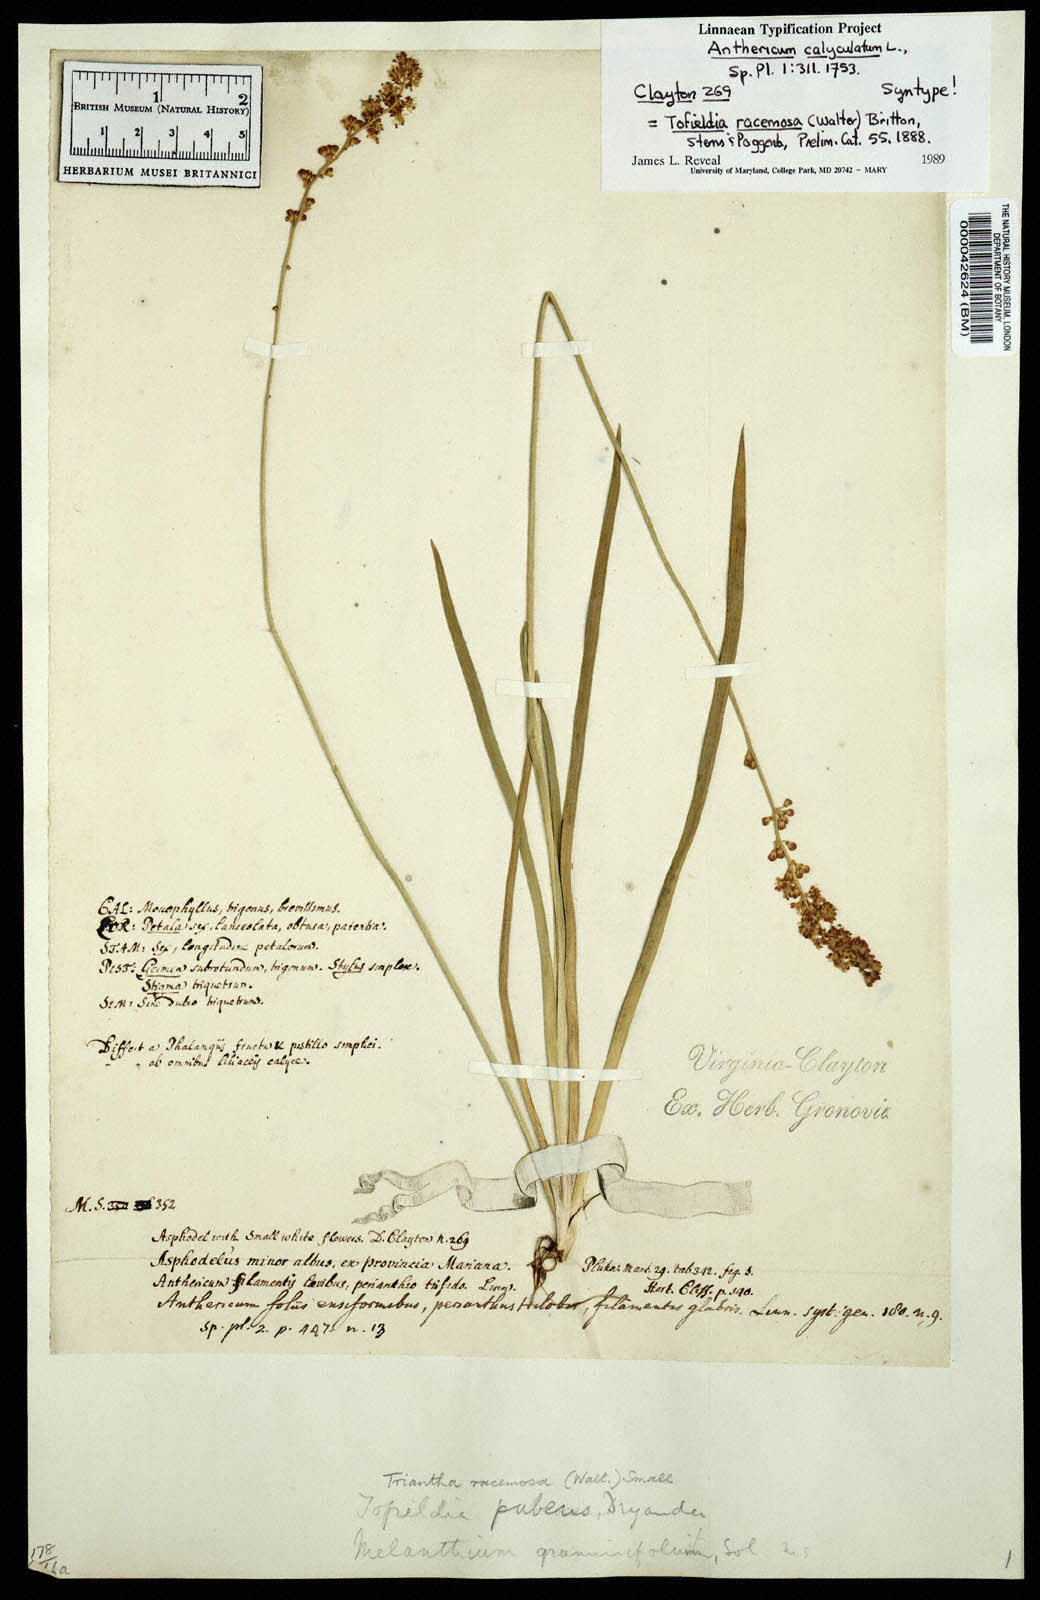 Linnaean Typification Project
Anthericum calyculatum L.,
Sp. Pl. 1:311. 1753.
Clayton 269 Syntype!
= Tofieldia racemosa (Walter) Britton,
Sterns & Poggenb, Prelim. Cat. 55. 1888.
James L. Reveal 1989
University of Maryland, College Park, MD 20742 – MARY
1 2
British Museum (Natural History)
1 2 3 4 5
HERBARIUM MUSEI BRITANNICI
THE NATURAL HISTORY MUSEUM, LONDON
DEPARTMENT OF BOTANY
000042624 (BM)
CAL: Monophyllus, trigonus, brevissimus.
COR: Petala sex, lanceolata, obtusa, patentia.
STAM: Sex, longitudine petalorum.
PIST: Germen subrotundum, trigonum. Stylus simplex.
Stigma triquetrum.
SEM: Sine dubio triquetrum.
Differt a Phalangiis fructu & pistillo simplici.
ab omnibus liliaceis calyce.
Virginia-Clayton
Ex. Herb. Gronovii
M. S. 352
Asphodel with small white flowers. D. Clayton n. 269
Asphodelus minor albus, ex provincia Mariana. Plukn. Mant. 29. tab. 342. fig. 3.
Anthericum filamentis laevibus, perianthio trifido. Linn. Hort. Cliff. p. 140.
Anthericum foliis ensiformibus, perianthiis trilobis, filamentis glabris. Linn. syst. gen. 180. n. 9.
Sp. pl. 2. p. 447. n. 13
Triantha racemosa (Walt.) Small
Tofieldia pubens, Dryander
Melanthium graminifolium, Sol ms
178
1